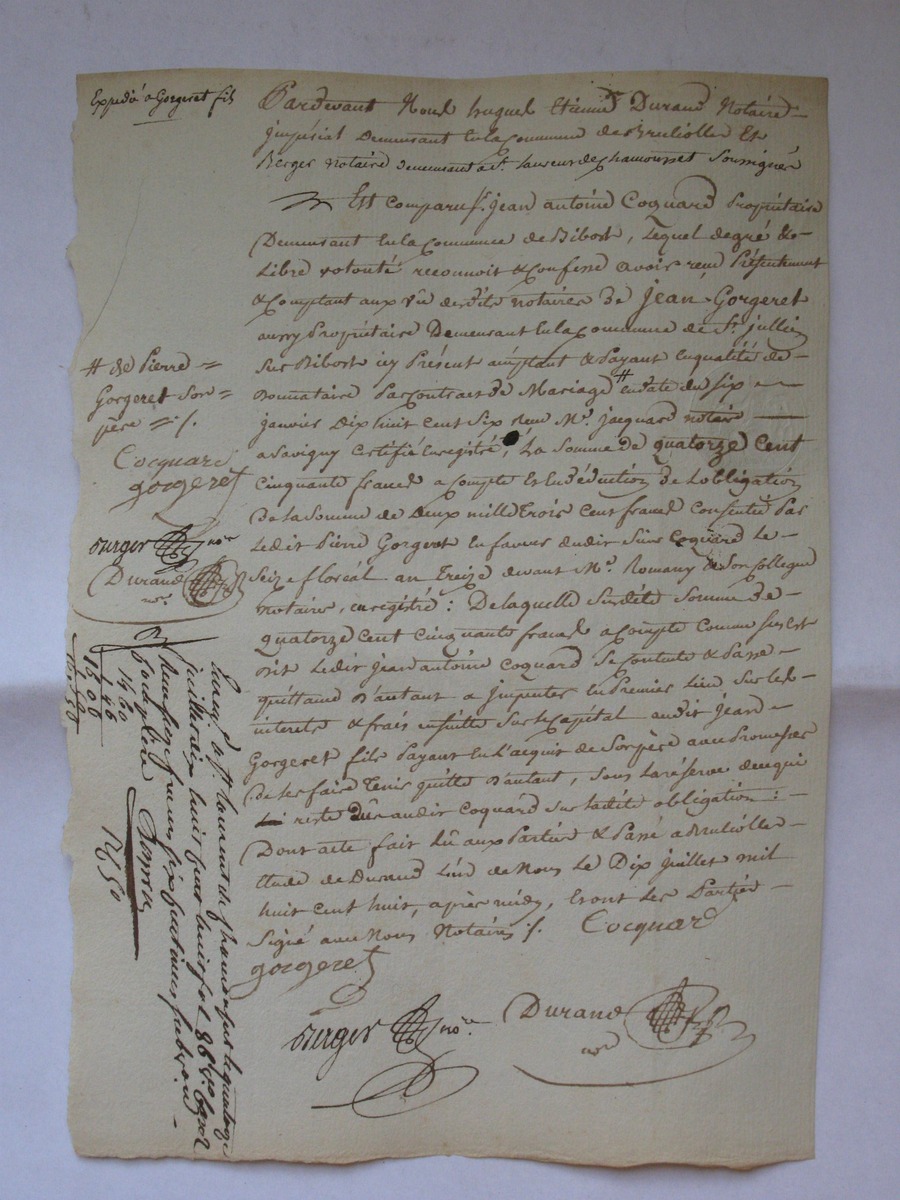 Expedié a Gorgeret fils
Pardevant Nous hugues Etienne Durand Notaire
impérial Demeurant En la Commune de Brullolles Et
Berger notaire demeurant a St. Laurent de Chamousset Soussignés
Est Comparu sr. jean antoine Coquard Propriétaire
Demeurant En la Commune de Bibost, Lequel de gré &
Libre volonté reconnoit & Confesse avoir reçu Présentement
& Comptant aux vûe desdits notaires de jean Gorgeret
aussy Propriétaire Demeurant En la Commune de St. jullien
Sur Bibost icy Présent acceptant & Payant En qualité de
Donnataire Par Contract de Mariage # en date du six
janvier Dix huit Cent Six reçu Me. jacquard notaire
a Savigny Certifié Enregistré, La Somme de quatorze Cent
Cinquante francs a Compte Et En déduction de L'obligation
De La Somme de Deux mille Trois Cent francs Consentie Par
Ledit Pierre Gorgeret En faveur dudit Sieur Coquard Le
Seize floréal an Treize devant Me. Romany & Son Collegue
notaires, enregistré : De laquelle Susdite Somme de
quatorze Cent Cinquante francs a Compte Comme Sus Est
Dit Ledit jean antoine Coquard Se Contente & Passe
quittance D'autant a imputer En Premier Lieu Sur Les
interets & frais ensuitte Sur Le Capital audit jean
Gorgeret fils Payant En L'acquit de Son père avec Promesse
De Les faire Tenir quitte D'autant, Sous La réserve de ce qui
Lui reste Dû audit Coquard Sur Ladite obligation :
Dont acte fait Lû aux Parties & Passé a Brullolles
Etude de Durand L'un de Nous Le Dix juillet mil
huit Cent huit, après midy, Et ont Les Parties
Signé avec Nous Notaires ./.
Cocquard
gorgeret
Berger nore.
Durand
nore.
# de Pierre =
Gorgeret Son =
père = ./.
Cocquard
gorgeret
Berger nore.
Durand
nore.
Enreg. a St. Laurent de Chamousset le quatorze
juillet dix huit cent huit fol 86
Reçu Seize francs six centimes
14.60
1.46
16.06